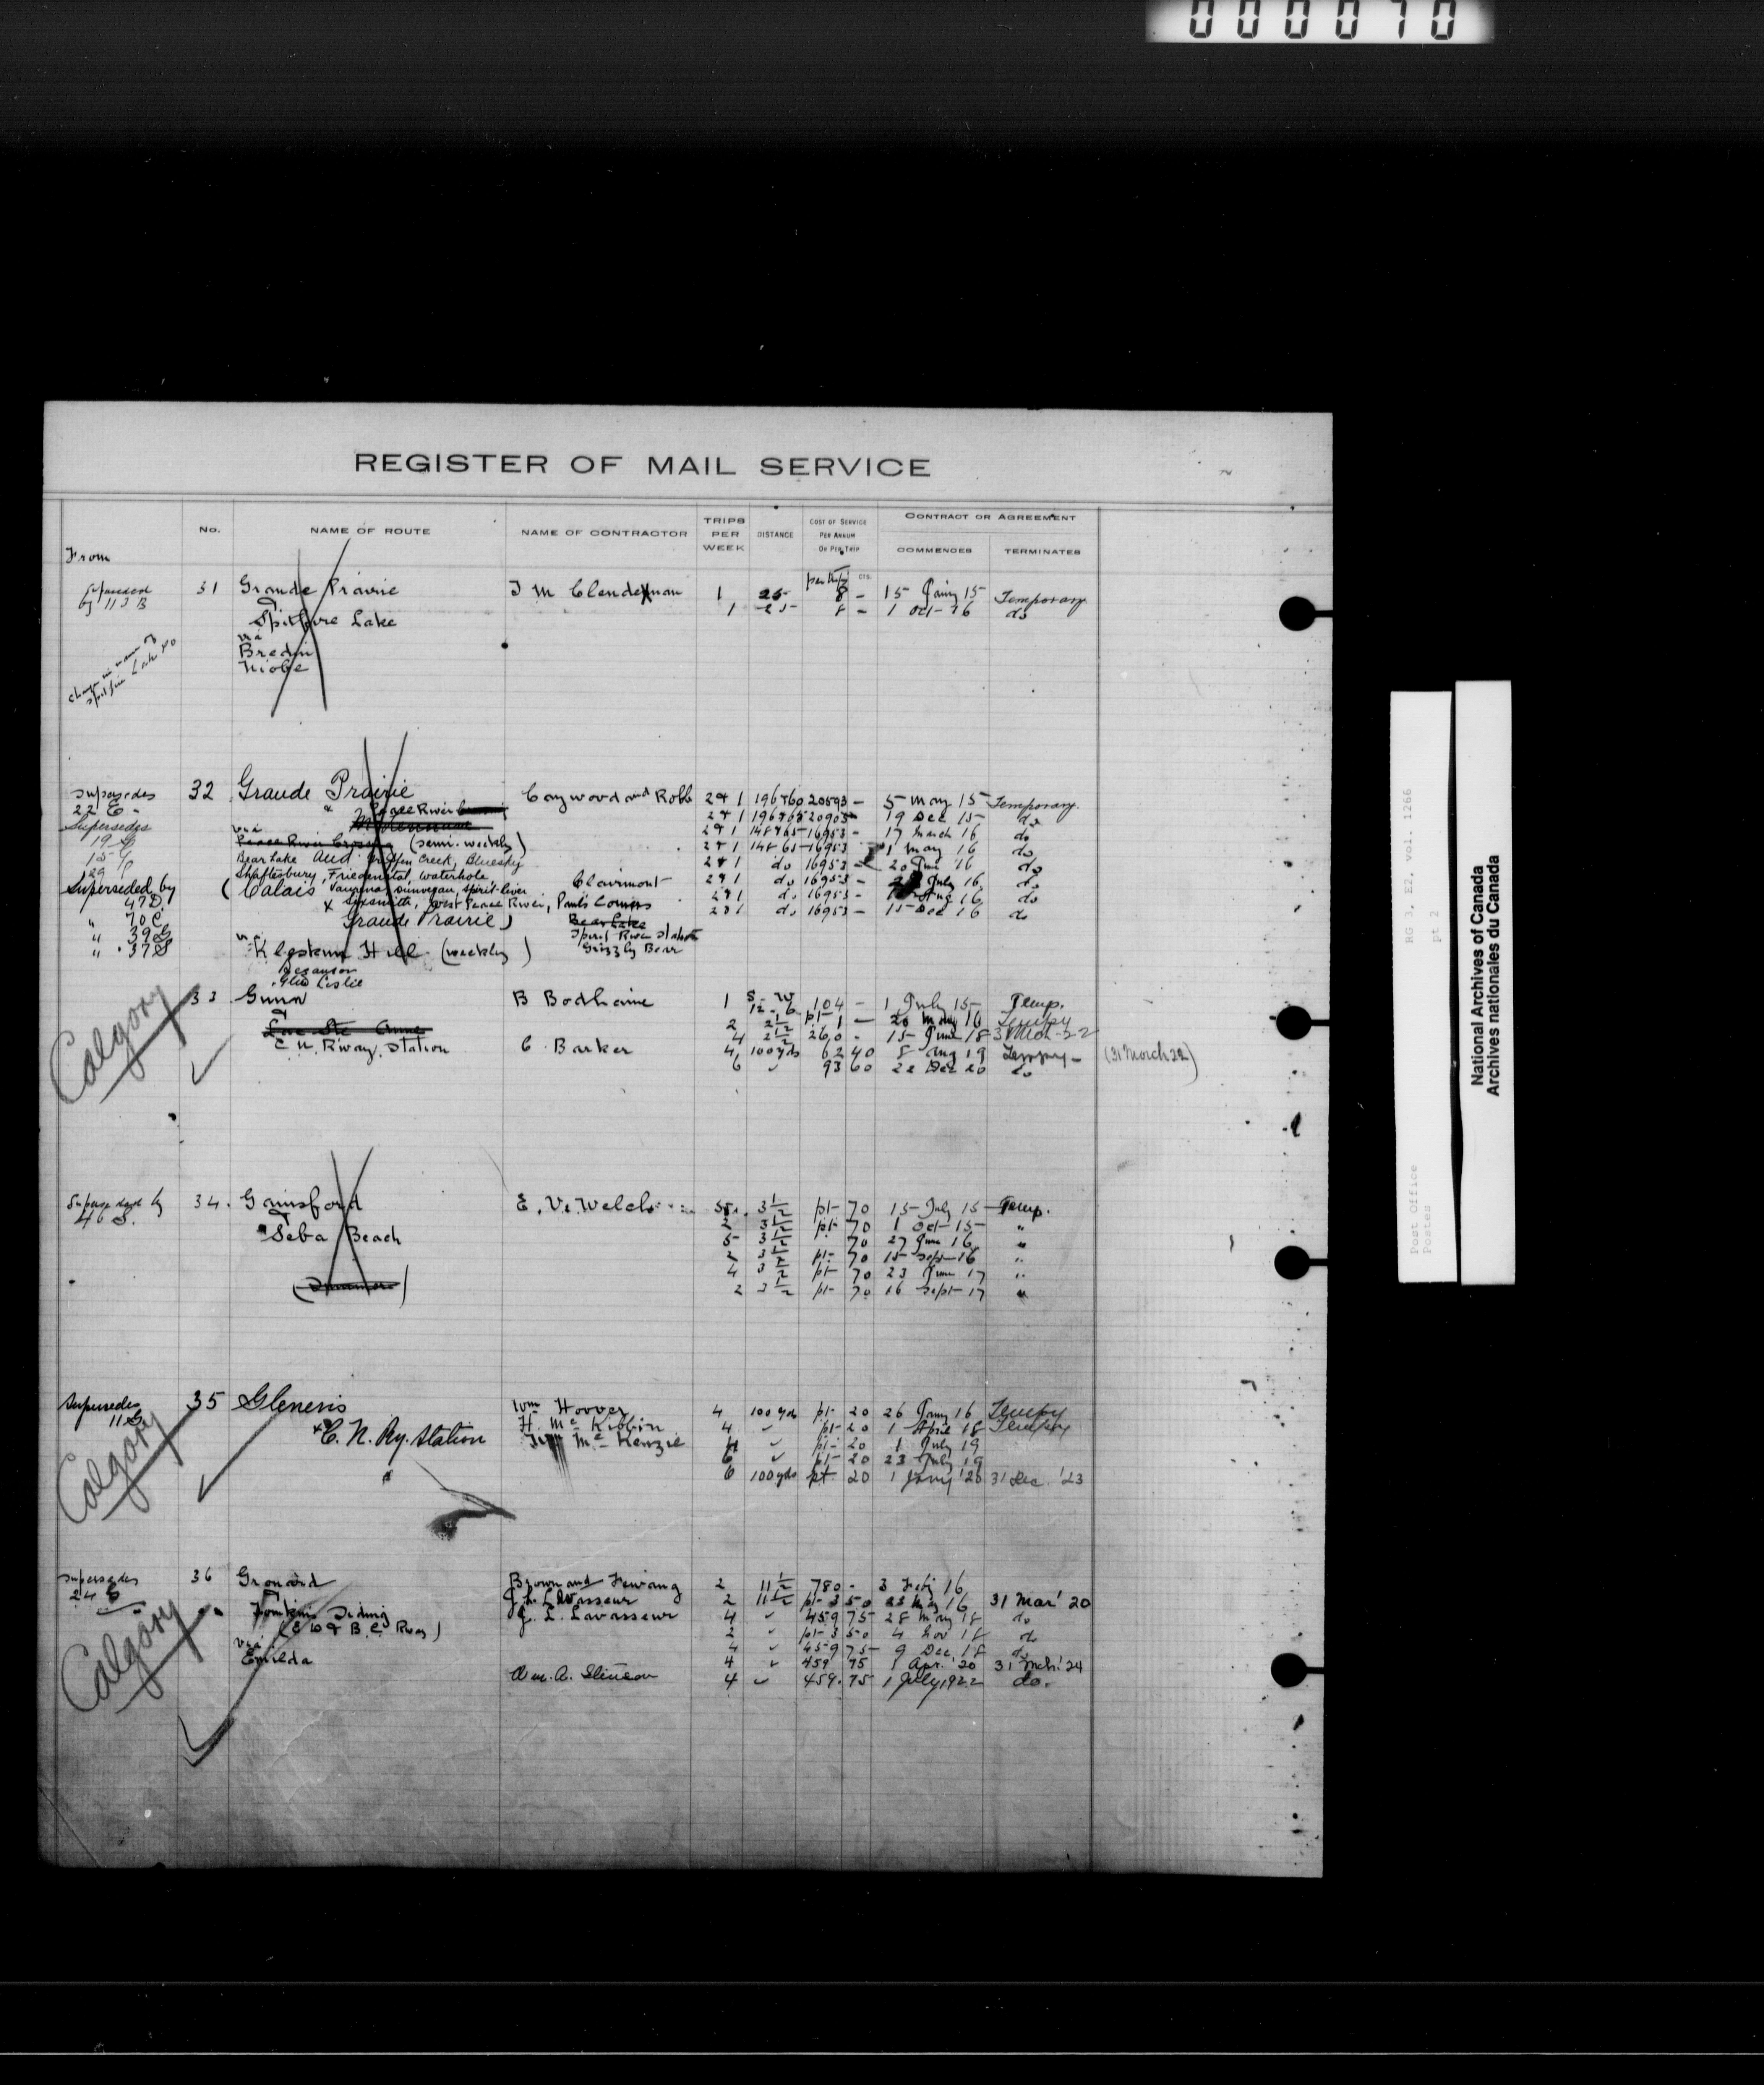 000070
REGISTER OF MAIL SERVICE
From
No.
NAME OF ROUTE
NAME OF CONTRACTOR
TRIPS PER WEEK
DISTANCE
COST OF SERVICE PER ANNUM OR PER TRIP
CTS.
CONTRACT OR AGREEMENT
COMMENCES
TERMINATES
by 113 B
31 Grande Prairie
Spitfire Lake
via
Bredin
Niobe
1 25 per trip 8 - 15 Jany 15 Temporary
1 25 8 - 1 Oct 16 do
Supersedes 22 E
32 Grande Prairie
Caywood and Robb
2 & 1 20593 - 5 May 15 Temporary
2 & 1 19 Dec 15 do
2 & 1 16953 - 17 March 16 do
2 & 1 16953 1 May 16 do
2 & 1 do 16953 - 20 June 16 do
2 & 1 do 16953 - July 16 do
2 & 1 do 16953 - Aug 16 do
2 & 1 do 16953 - 15 Dec 16 do
Supersedes
19 G
15 G
& Peace River
via
Peace River Crossing (semi-weekly)
Bear Lake and Griffin Creek, Bluesky
Shaftesbury, Friedenstal, Waterhole
(Calais Vanrena, Dunvegan, Spirit River
& Sexsmith, West Peace River,
Grande Prairie)
Clairmont
Bear Lake
Spirit River Station
Grizzly Bear
Superseded by
47 D
" 70 C
" 39 G
" 37 S
via Kleskun Hill (weekly)
Bezanson
Glen Leslie
Calgary
33 Gunn
&
Lac Ste Anne
C N. Rway. Station
B Bodhaine
C. Barker
1 104 - 1 July 15 Temp.
2 2 1/2 pt 1 - 20 May 16 Tempy
4 2 1/2 260 - 15 June 18 31 Mch 22
4 100 yds 62 40 8 Aug 19 Tempy - (31 March 22)
6 93 60 22 Dec 20 do
Superseded by
46 S.
34. Gainsford
&
Seba Beach
E. V. Welch
3 1/2 pt 70 15 July 15 Temp.
2 3 1/2 pt 70 1 Oct 15 "
5 3 1/2 70 27 June 16 "
2 3 1/2 pt 70 15 Sept 16 "
4 3 1/2 pt 70 23 June 17 "
2 3 1/2 pt 70 16 Sept 17 "
Supersedes
11 G
Calgary
35 Glenevis
& C. N. Ry. Station
Wm Hoover
H. McKibbin
McKenzie
4 100 yds pt 20 26 Jany 16 Tempy
4 pt 20 1 April 18 Tempy
pt 20 1 July 19
6 pt 20 23 July 19
6 100 yds pt. 20 1 Jany '20 31 Dec. '23
Supersedes
24 G
Calgary
36 Grouard
&
Tomkins Siding
(E D & B. C. Rway)
via
Enilda
Brown and
J. L. Lavasseur
J. L. Lavasseur
2 11 1/2 780 - 3 Feby 16
2 11 1/2 pt 3 50 23 May 16 31 Mar' 20
4 459 75 28 May 18 do
2 pt 3 50 4 Nov 18 do
4 459 75 9 Dec 18 do
4 459 75 1 Apr. '20 31 Mch. '24
4 459.75 1 July 1922 do.
RG 3, E2, vol. 1266
pt 2
Post Office
Postes
National Archives of Canada
Archives nationales du Canada